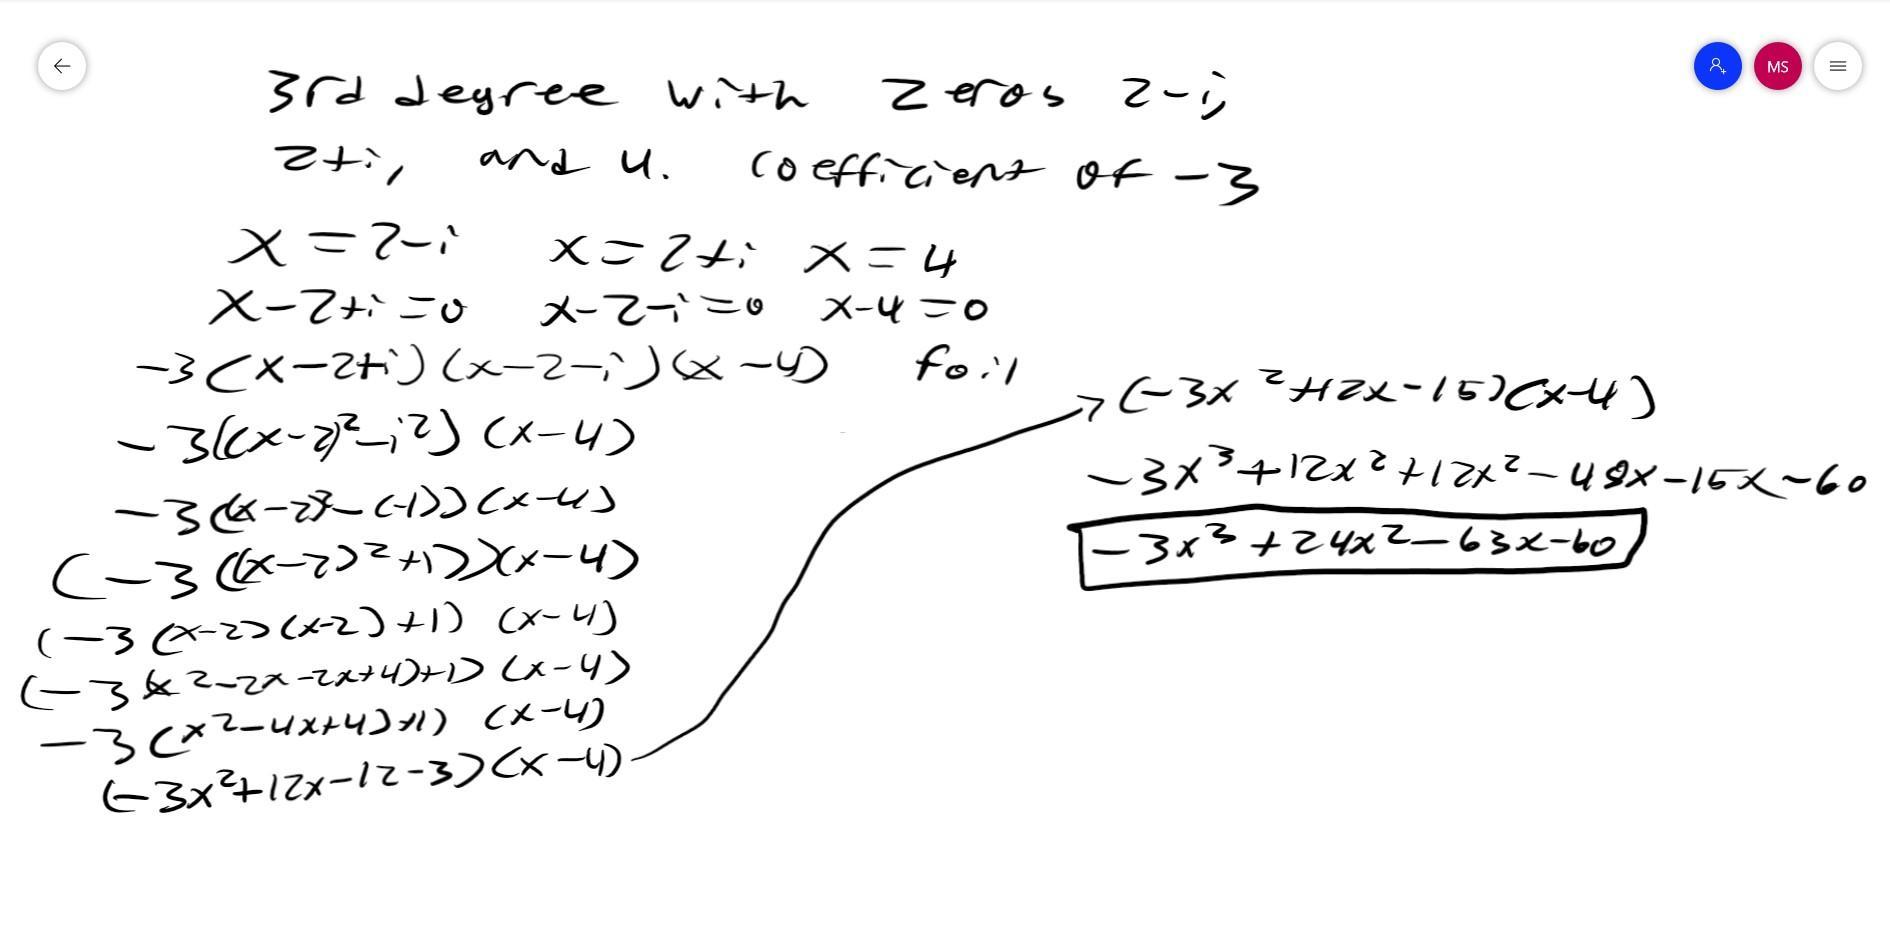 MS
3rd degree with zeros 2-i,
2+i, and 4. coefficient of -3
x=2-i x=2+i x=4
x-2+i=0 x-2-i=0 x-4=0
-3(x-2+i)(x-2-i)(x-4) foil
-3((x-2)²-i²)(x-4)
-3((x-2)²-(-1))(x-4)
(-3((x-2)²+1))(x-4)
(-3(x-2)(x-2)+1) (x-4)
(-3(x²-2x-2x+4)+1) (x-4)
-3(x²-4x+4)+1) (x-4)
(-3x²+12x-12-3)(x-4)
(-3x²+12x-15)(x-4)
-3x³+12x²+12x²-48x-15x-60
-3x³+24x²-63x-60